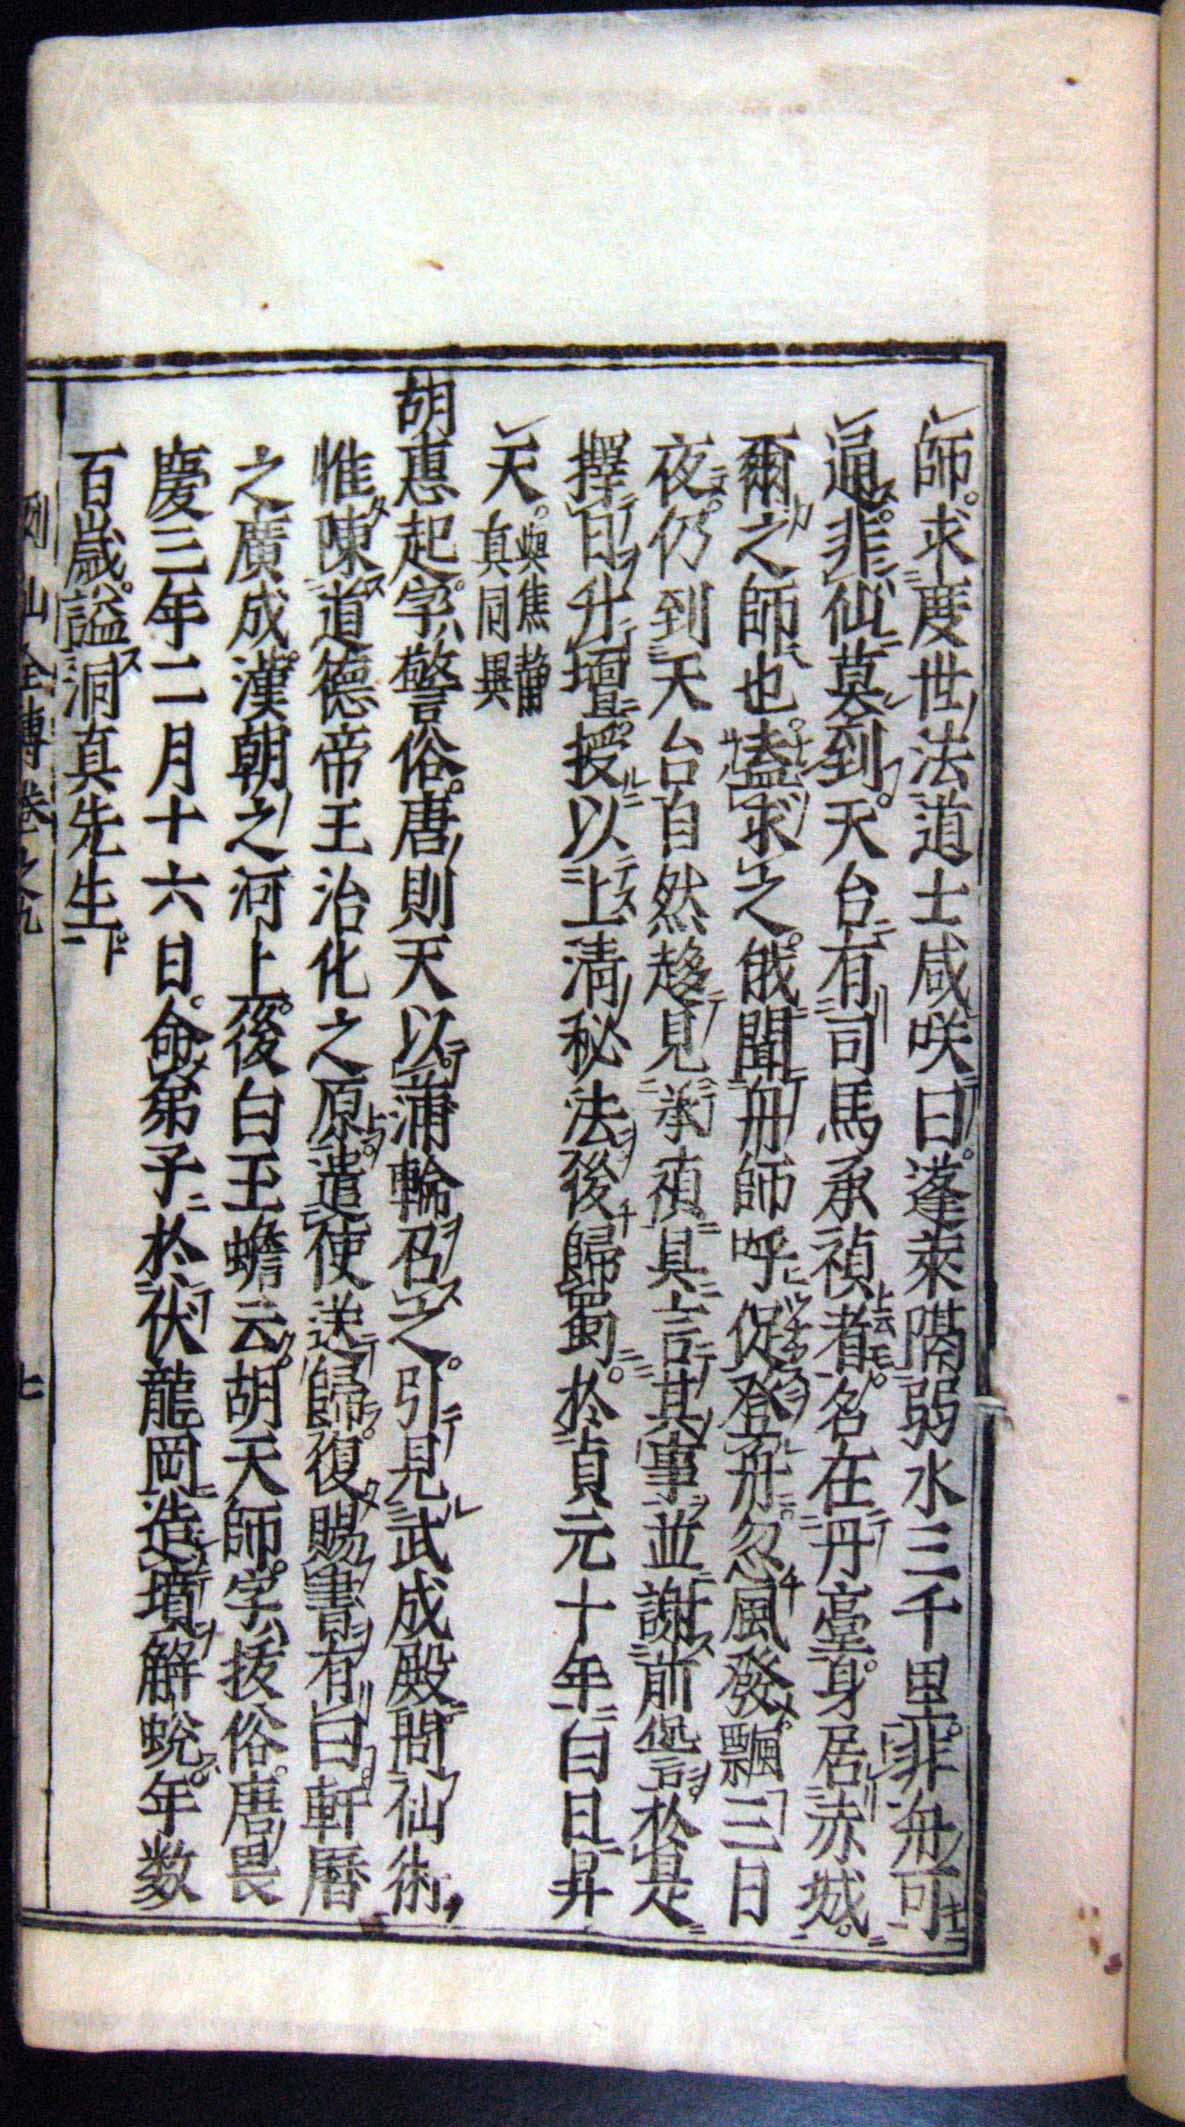 師。求度世法道士咸咲曰。蓬萊隔弱水三千里。非舟可
逼。非仙莫到。天台有司馬承禎者。名在丹臺。身居赤城。
爾之師也。盍求之。俄聞舟師呼促登舟。忽風發。飄三日
夜。仍到天台自然趍見承禎具言其事並謝前愆於是
擇日升壇。授以上清秘法後歸蜀。於貞元十年白日昇
天。與焦静真同異
胡惠起。字警俗。唐則天以蒲輪召之。引見武成殿。問仙術。
惟陳道德帝王治化之原。遣使送歸。復賜書有曰。軒曆
之廣成。漢朝之河上。後白玉蟾云。胡天師。字抜俗。唐晨
慶三年二月十六日。命弟子於伏龍岡造墳解蛻。年数
百歳。謚洞真先生
列仙全傳卷之九
七